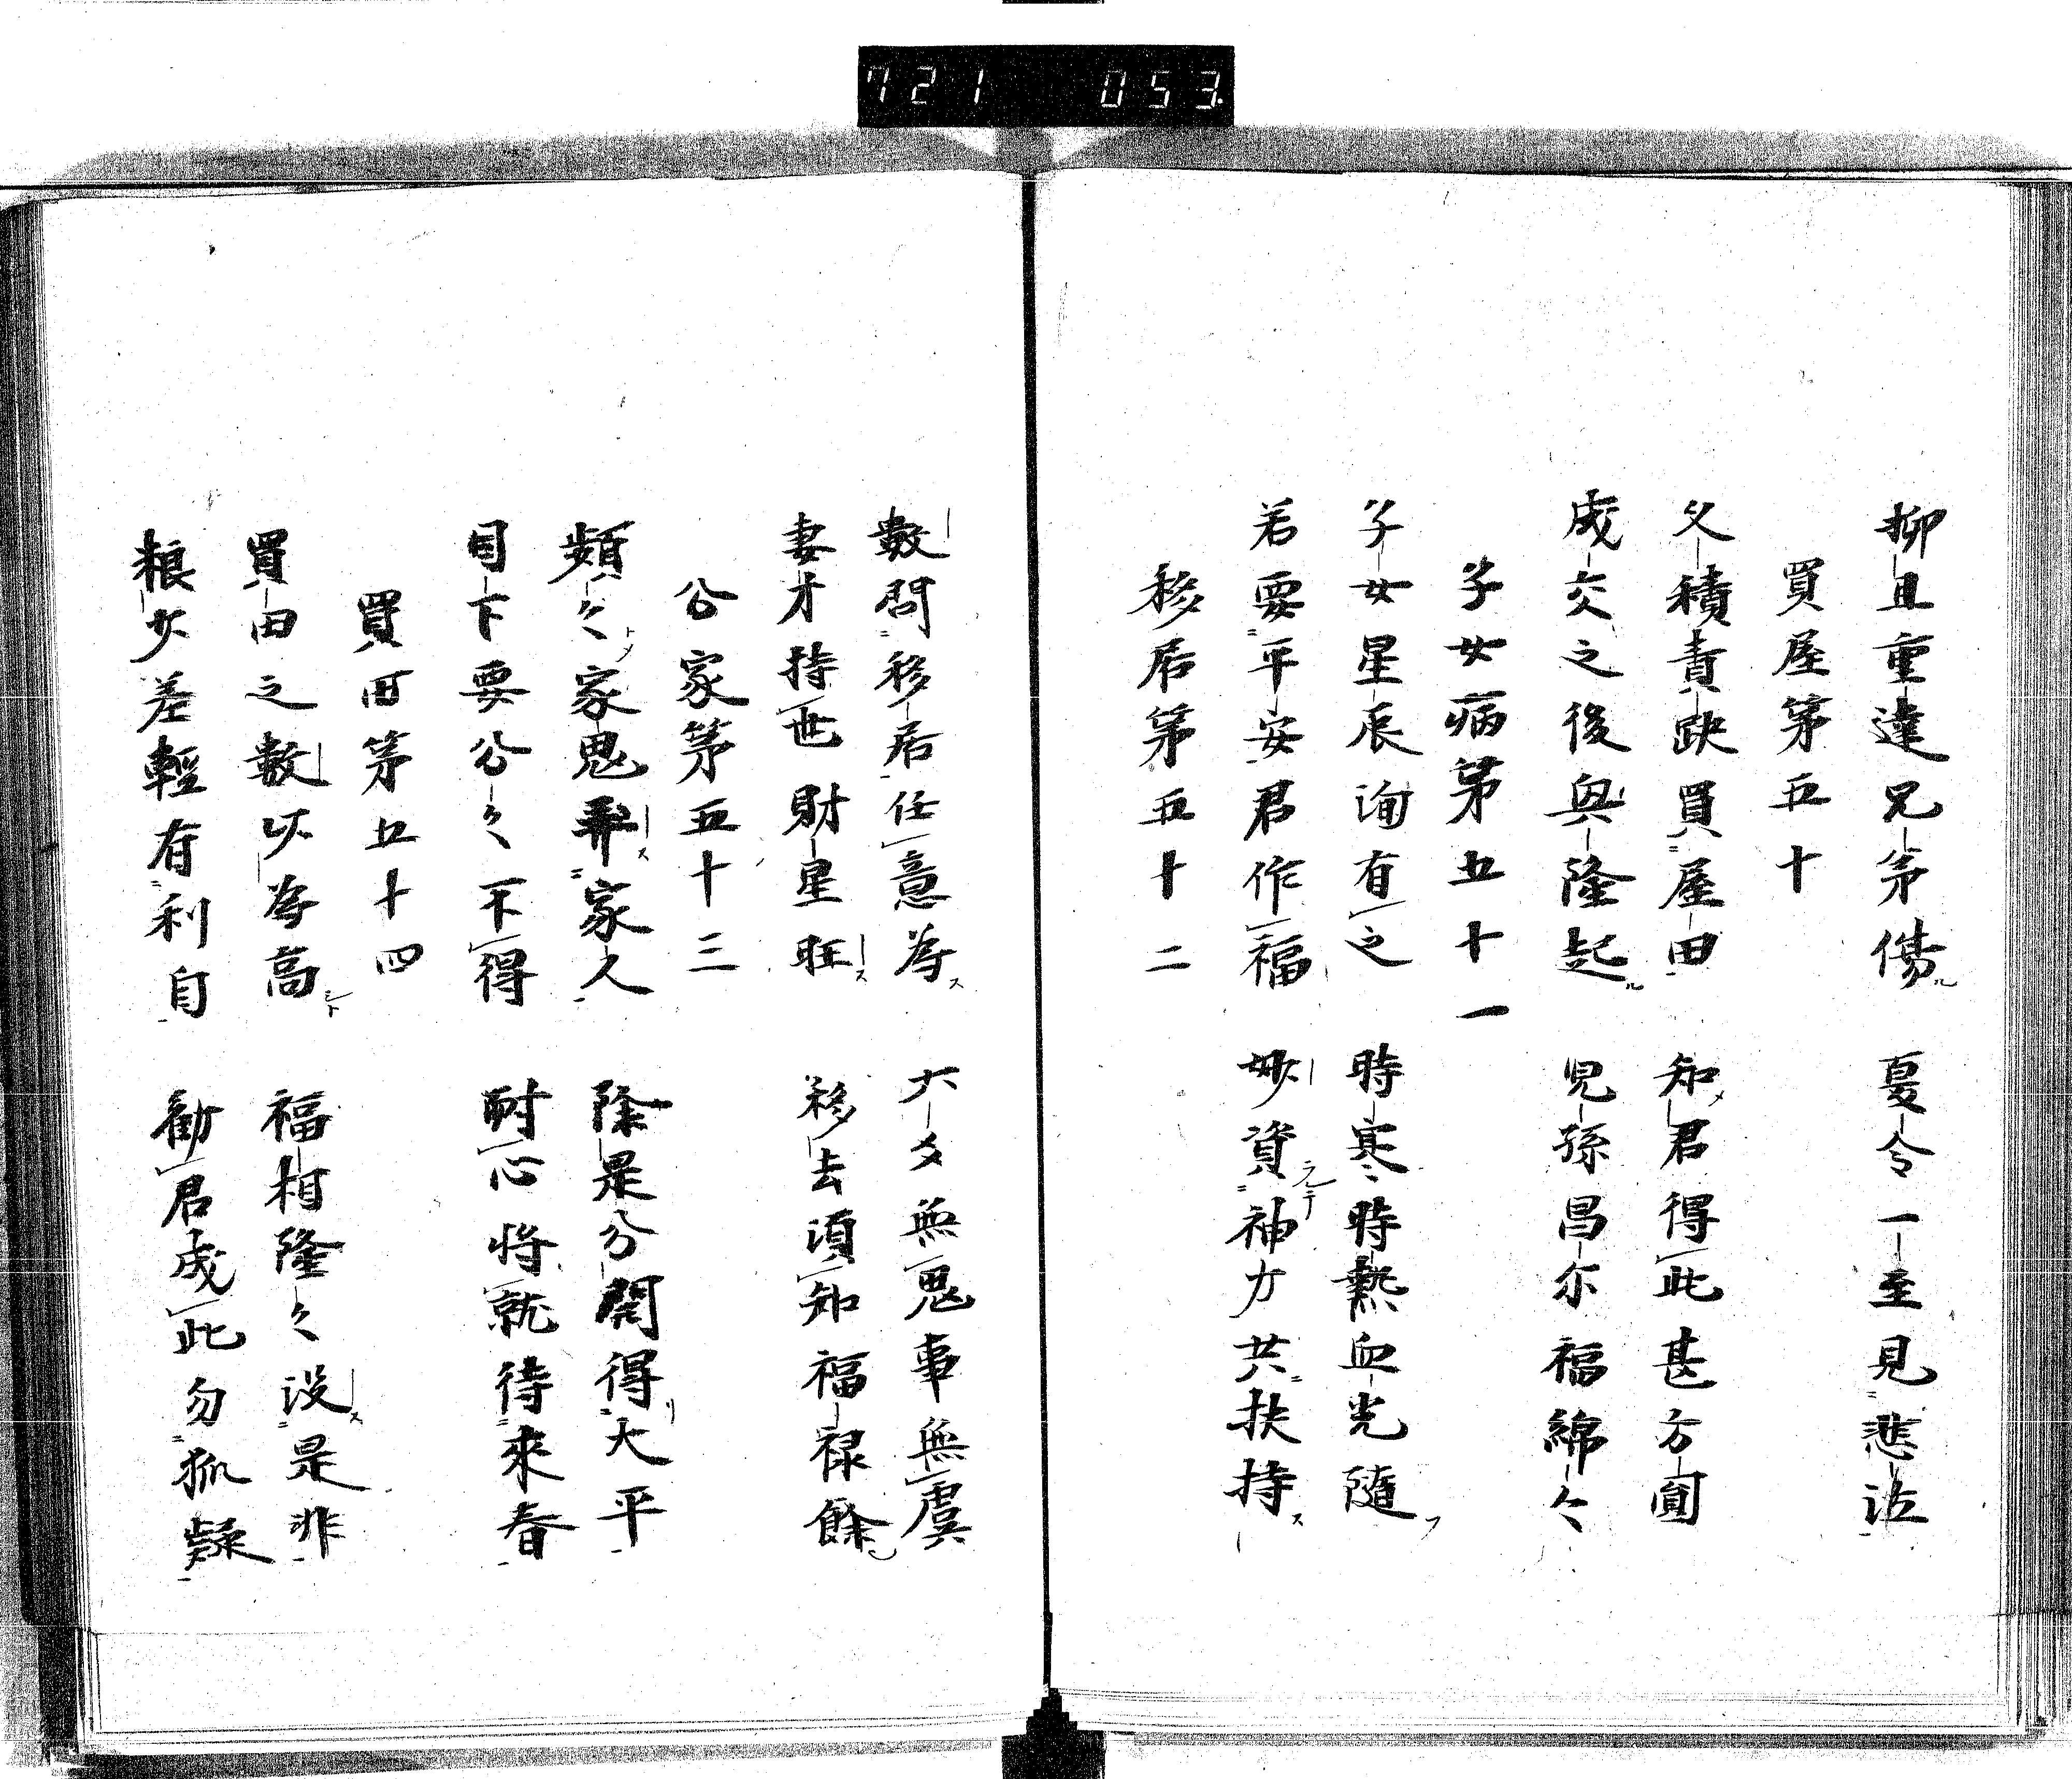 721 053
抑且重違兄弟傷 夏令一至見悲泣
買屋第五十
久積責缺買屋田 知君得此甚方圓
成交之後與隆起 児孫昌尓福綿々
子女病第五十一
子女星辰洵有之 時寒時熱血光随
若要平安君作福 妙資神力共扶持
移居第五十二
數問移居任意為 六爻無鬼事無虞
妻才持世財星旺 移去須知福禄餘
公家第五十三
頻々家鬼弄家人 除是分開得大平
目下要分々不得 耐心将就待來春
買田第五十四
買田之數以為高 福相隆々没是非
粮少差輕有利自 勧君成此勿狐疑